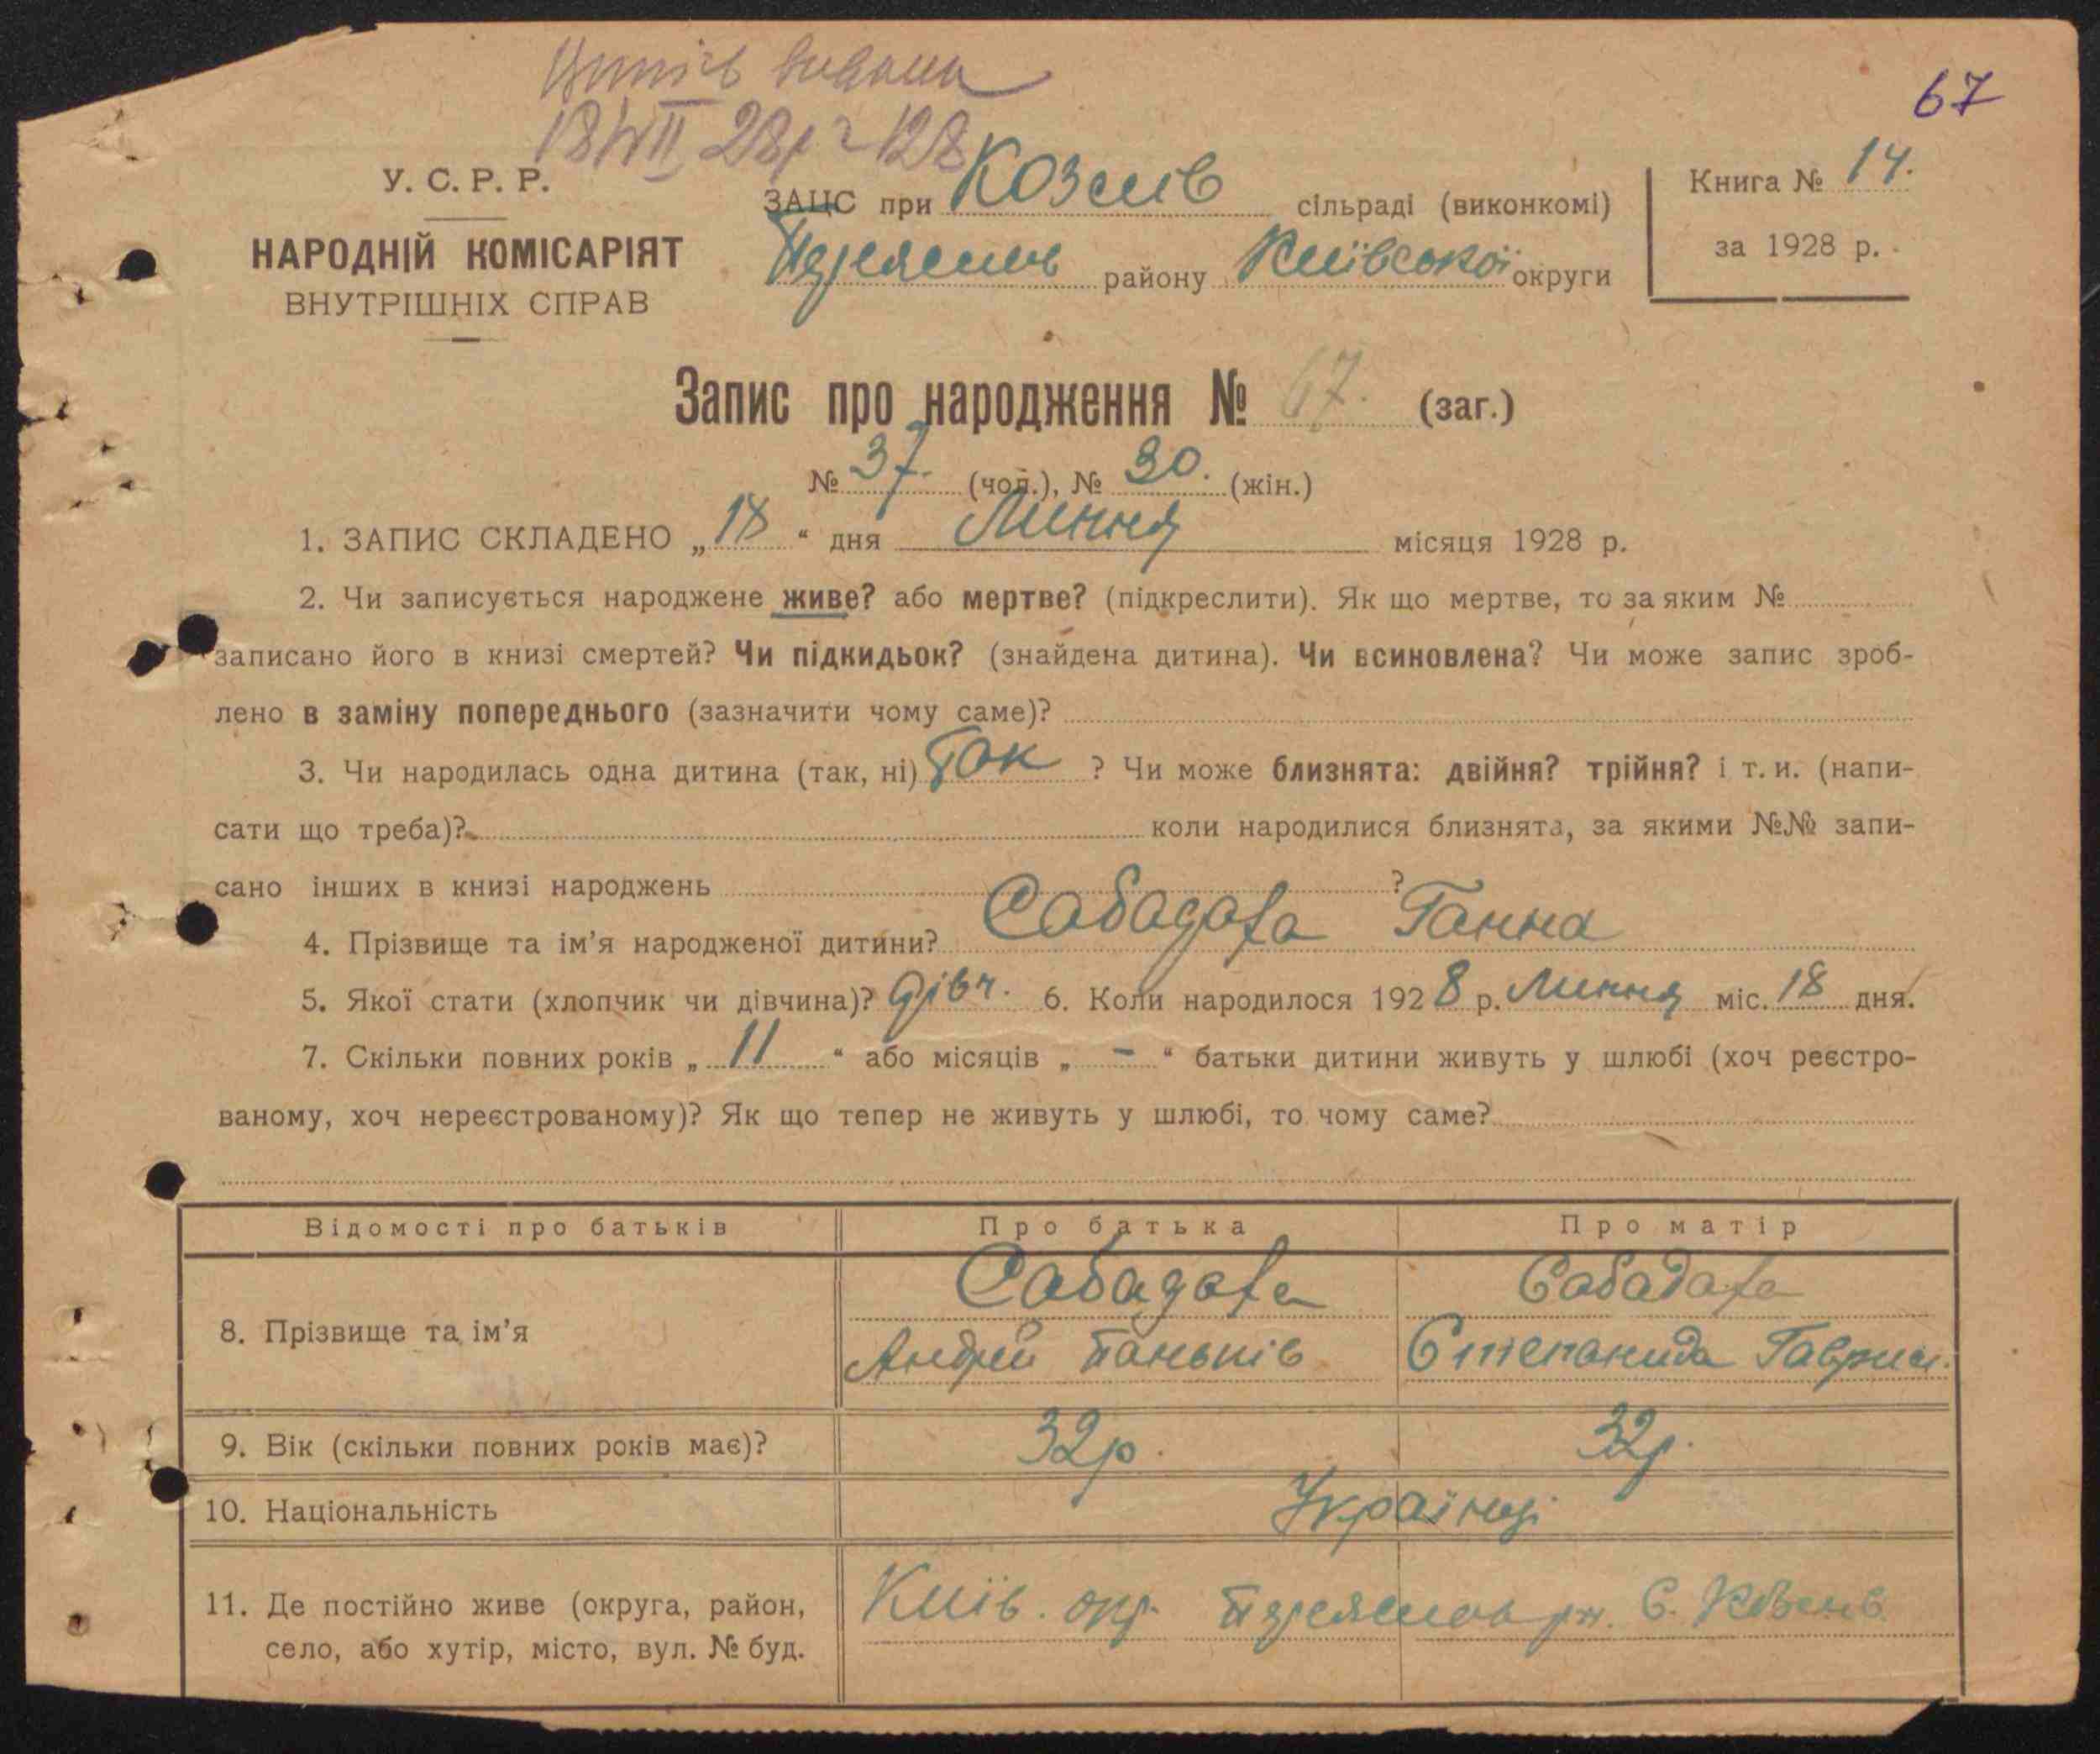 67
У. С. Р. Р.
НАРОДНІЙ КОМІСАРІЯТ
ВНУТРІШНІХ СПРАВ
ЗАЦС при Козлів сільраді (виконкомі)
району Київської округи
Книга № 14.
за 1928 р.
Запис про народження № 67. (заг.)
№ 37. (чол.), № 30. (жін.)
1. ЗАПИС СКЛАДЕНО „ 18 “ дня Липня місяця 1928 р.
2. Чи записується народжене живе? або мертве? (підкреслити). Як що мертве, то за яким №
записано його в книзі смертей? Чи підкидьок? (знайдена дитина). Чи всиновлена? Чи може запис зроб-
лено в заміну попереднього (зазначити чому саме)?
3. Чи народилась одна дитина (так, ні) Так ? Чи може близнята: двійня? трійня? і т. и. (напи-
сати що треба)? коли народилися близнята, за якими №№ запи-
сано інших в книзі народжень ?
4. Прізвище та ім’я народженої дитини? Сабадаха Ганна
5. Якої стати (хлопчик чи дівчина)? дівч. 6. Коли народилося 1928 р. Липня міс. 18 дня.
7. Скільки повних років „ 11 “ або місяців „ – “ батьки дитини живуть у шлюбі (хоч реєстро-
ваному, хоч нереєстрованому)? Як що тепер не живуть у шлюбі, то чому саме?
Відомості про батьків Про батька Про матір
8. Прізвище та ім’я Сабадаха Сабадаха
Андрій Паньків Степанида Гаврил.
9. Вік (скільки повних років має)? 32р. 32р.
10. Національність Українці
11. Де постійно живе (округа, район, Київ. окр. рн. С. Козлів
село, або хутір, місто, вул. № буд.